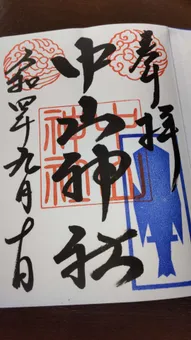 奉拝
中山神社
中山
神社
令和四年九月十日